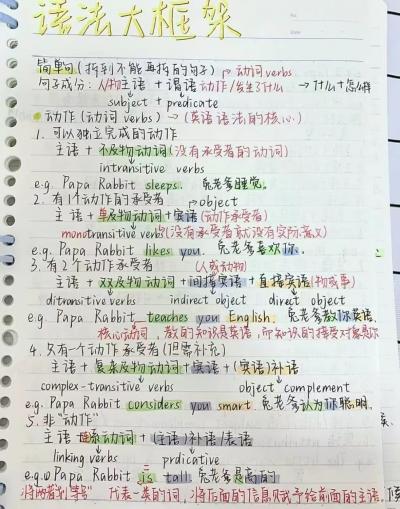 语法大框架
简单句(拆到不能再拆的句子) → 动词verbs
句子成分: 人/物主语 + 谓语动作/发生了什么 → 什么+怎么样
subject + predicate
动作(动词 verbs) → (英语语法的核心)
1. 可以独立完成的动作
主语 + 不及物动词(没有承受者的动词)
intransitive verbs
e.g. Papa Rabbit sleeps. 兔老爹睡觉。
2. 有1个动作的承受者 object
主语 + 单及物动词+宾语(动作承受者)
monotransitive verbs(没有承受者就没有实际意义)
e.g. Papa Rabbit likes you. 兔老爹喜欢你.
3. 有2个动作承受者 (人或动物)
主语 + 双及物动词+间接宾语+直接宾语(物或事)
ditransitive verbs indirect object direct object
e.g. Papa Rabbit teaches you English. 兔老爹教你英语.
核心动词, 教的知识是英语, 而知识的接受对象是你
4. 只有一个动作承受者(但需补充)
主语 + 复杂及物动词+宾语 + (宾语)补语
complex-transitive verbs object complement
e.g. Papa Rabbit considers you smart 兔老爹认为你聪明.
5. 非"动作"
主语 + 系动词 + (主语)补语/表语
linking verbs prdicative
e.g. Papa Rabbit is tall 兔老爹是高的
代表一类的词, 将后面的信息赋予给前面的主语.